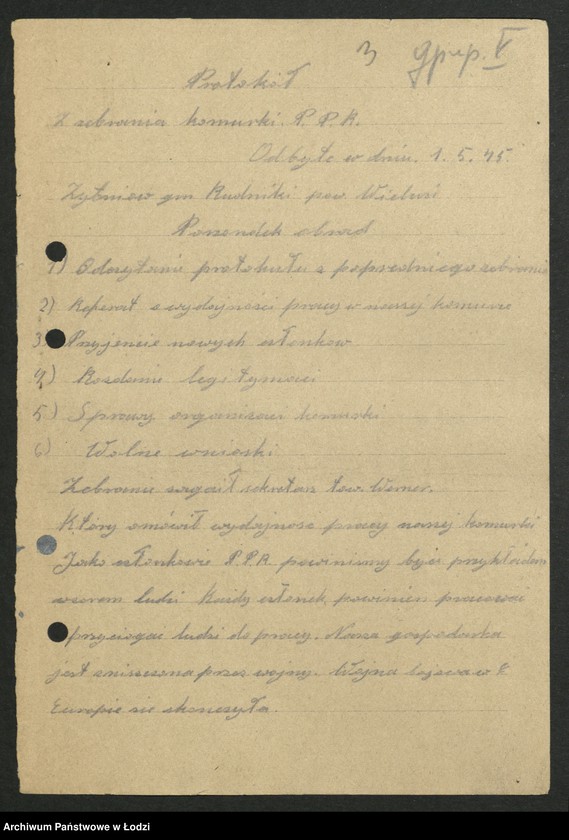 3 gprp. V
Protokół
Z zebrania komurki P.P.R.
Odbyte w dniu. 1. 5. 45.
Żytniow gm Rudniki pow. Wieluń
Porzondek obrad
1) Odczytanie protokułu z poprzedniego zebrania
2) Referat o wydajności pracy w naszej komurce
3) Przyjencie nowych członkow
4) Rozdanie legitymaci
5) Sprawy organizaci komurki
6) Wolne wnioski
Zebranie zagaił sekretarz tow. Werner.
Który omówił wydajnosc pracy naszej komurki
Jako członkowie P.P.R. powiniśmy być przykładem
wzorem ludzi Każdy członek powinien pracować
przyciogać ludzi do pracy. Nasza gospodarka
jest zniszczona przez wojny. Wojna w
Europie sie skonczyła.
Archiwum Państwowe w Łodzi